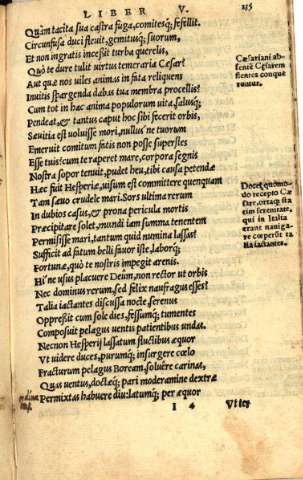 LIBER V. 135
Quàm tacita sua castra fuga, comitesq; fefellit.
Circunfusa duci fleuit, gemituq; suorum,
Et non ingratis incessit turba querelis.
Quò te dure tulit virtus temeraria Cæsar?
Aut quæ nos uiles animas in fata relinquens
Inuitis spargenda dabas tua membra procellis?
Cum tot in hac anima populorum uita, salusq;
Pendeat, & tantus caput hoc sibi fecerit orbis,
Sæuitia est uoluisse mori, nullus ne tuorum
Emeruit comitum fatis non posse superstes
Esse tuis? cum te raperet mare, corpora segnis
Nostra sopor tenuit, pudet heu, tibi causa petendæ
Hæc fuit Hesperiæ, uisum est committere quenquam
Tam sæuo crudele mari. Sors ultima rerum
In dubios casus, & prona pericula mortis
Præcipitare solet, mundi iam summa tenentem
Permisisse mari, tantum quid numina lassas?
Sufficit ad fatum belli fauor iste, laborq;
Fortunæ, quò te nostris impegit arenis.
Hi ne usus placuere Deûm, non rector ut orbis
Nec dominus rerum, sed felix naufragus esses?
Talia iactantes discussa nocte, serenus
Oppressit cum sole dies, fessumq; tumentes
Composuit pelagus uentis patientibus undas.
Necnon Hesperij lassatum fluctibus æquor
Vt uidere duces, purumq; insurgere cœlo
Fracturum pelagus Boream, soluêre carinas,
Quas uentus, doctæq; pari moderamine dextræ
Permixtas habuere diu: latumq; per æquor
I 4 Vt ter
Cæsariani absentē Cæsarem flentes conqueruntur.
Docet, quomodo recepto Cæsare, orta sit